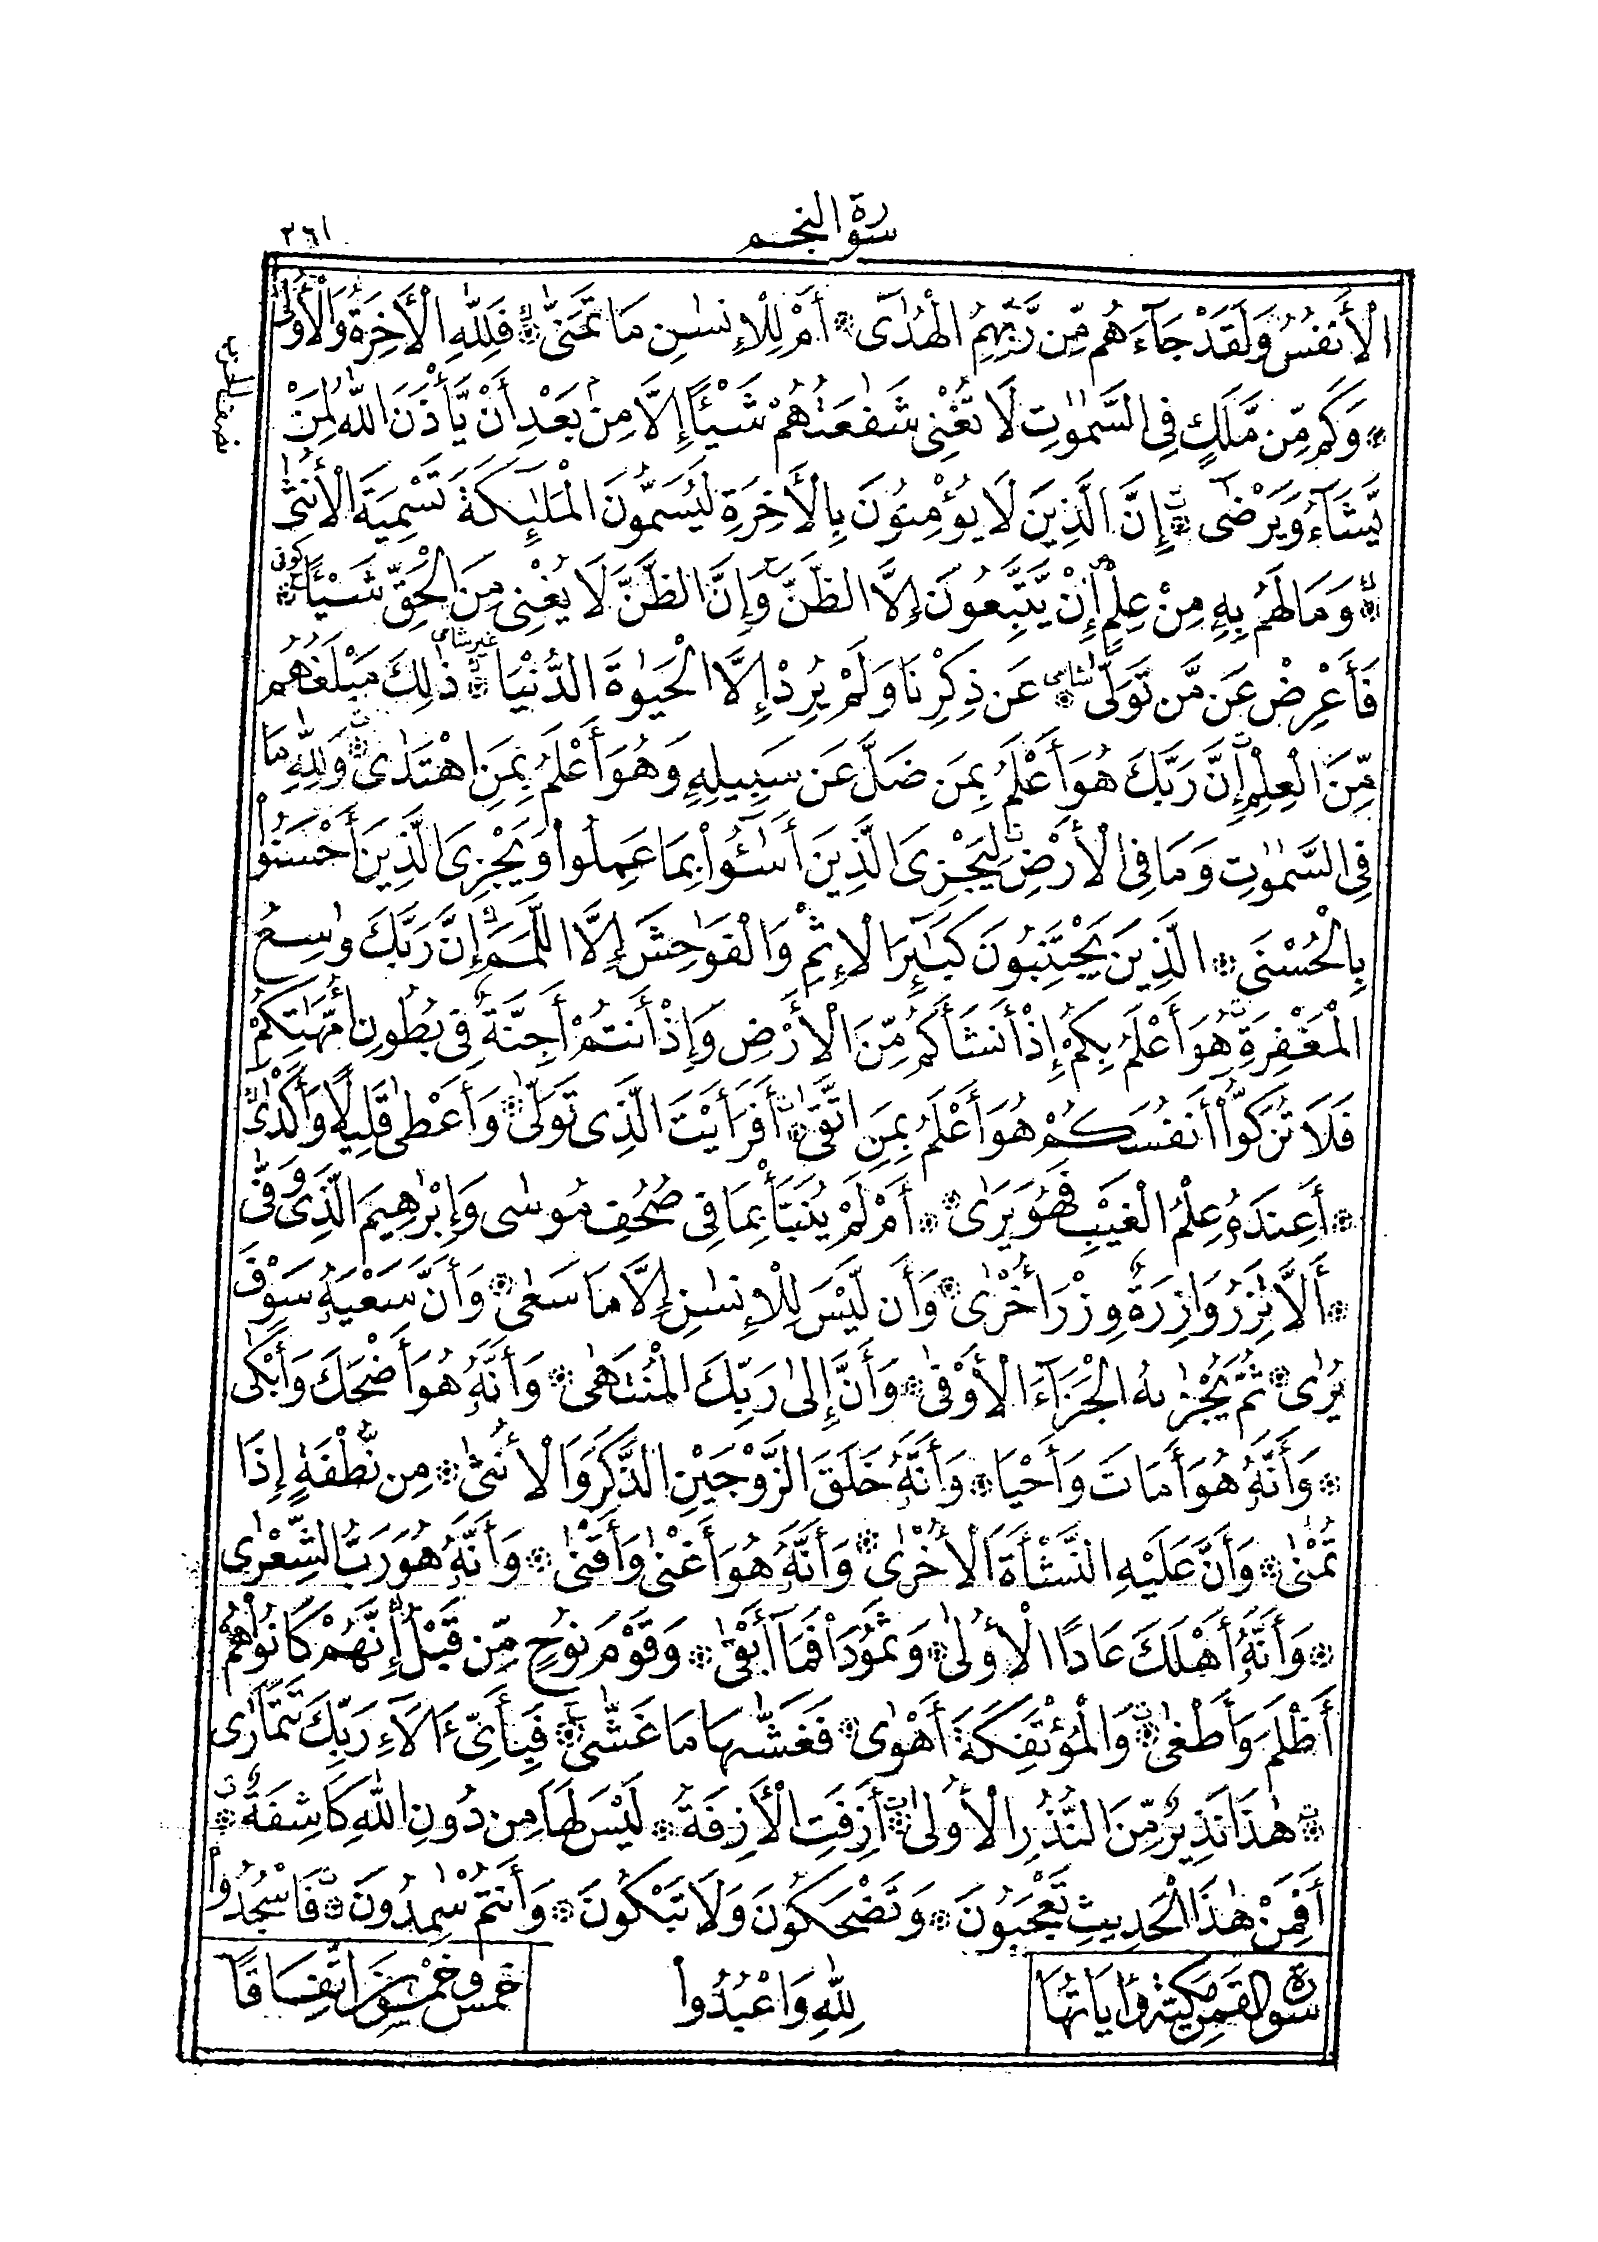 سورة النجم
٢٦١
الْأَنفُسُ وَلَقَدْ جَآءَهُم مِّن رَّبِّهِمُ الْهُدَىٰٓ ۞ أَمْ لِلْإِنسَٰنِ مَا تَمَنَّىٰ ۞ فَلِلَّهِ الْأَخِرَةُ وَالْأُولَىٰ
۞ وَكَم مِّن مَّلَكٍ فِى السَّمَٰوَٰتِ لَا تُغْنِى شَفَٰعَتُهُمْ شَيْـًٔا إِلَّا مِنۢ بَعْدِ أَنْ يَّأْذَنَ اللَّهُ لِمَنْ
يَّشَآءُ وَيَرْضَىٰٓ ۞ إِنَّ الَّذِينَ لَا يُؤْمِنُونَ بِالْأَخِرَةِ لَيُسَمُّونَ الْمَلَٰٓئِكَةَ تَسْمِيَةَ الْأُنثَىٰ
۞ وَمَا لَهُم بِهِ مِنْ عِلْمٍ إِنْ يَّتَّبِعُونَ إِلَّا الظَّنَّ وَإِنَّ الظَّنَّ لَا يُغْنِى مِنَ الْحَقِّ شَيْـًٔا ۞ كوفى
فَأَعْرِضْ عَن مَّن تَوَلَّىٰ ۞ شامى عَن ذِكْرِنَا وَلَمْ يُرِدْ إِلَّا الْحَيَوٰةَ الدُّنْيَا ۞ غير شامى ذَٰلِكَ مَبْلَغُهُم
مِّنَ الْعِلْمِ إِنَّ رَبَّكَ هُوَ أَعْلَمُ بِمَن ضَلَّ عَن سَبِيلِهِ وَهُوَ أَعْلَمُ بِمَنِ اهْتَدَىٰ ۞ وَلِلَّهِ مَا
فِى السَّمَٰوَٰتِ وَمَا فِى الْأَرْضِ لِيَجْزِىَ الَّذِينَ أَسَٰٓـُٔوا۟ بِمَا عَمِلُوا۟ وَيَجْزِىَ الَّذِينَ أَحْسَنُوا۟
بِالْحُسْنَى ۞ الَّذِينَ يَجْتَنِبُونَ كَبَٰٓئِرَ الْإِثْمِ وَالْفَوَٰحِشَ إِلَّا اللَّمَمَ إِنَّ رَبَّكَ وَٰسِعُ
الْمَغْفِرَةِ هُوَ أَعْلَمُ بِكُمْ إِذْ أَنشَأَكُم مِّنَ الْأَرْضِ وَإِذْ أَنتُمْ أَجِنَّةٌ فِى بُطُونِ أُمَّهَٰتِكُمْ
فَلَا تُزَكُّوٓا۟ أَنفُسَكُمْ هُوَ أَعْلَمُ بِمَنِ اتَّقَىٰٓ ۞ أَفَرَأَيْتَ الَّذِى تَوَلَّىٰ ۞ وَأَعْطَىٰ قَلِيلًا وَأَكْدَىٰٓ
۞ أَعِندَهُ عِلْمُ الْغَيْبِ فَهُوَ يَرَىٰٓ ۞ أَمْ لَمْ يُنَبَّأْ بِمَا فِى صُحُفِ مُوسَىٰ وَإِبْرَٰهِيمَ الَّذِى وَفَّىٰٓ
۞ أَلَّا تَزِرُ وَازِرَةٌ وِزْرَ أُخْرَىٰ ۞ وَأَن لَّيْسَ لِلْإِنسَٰنِ إِلَّا مَا سَعَىٰ ۞ وَأَنَّ سَعْيَهُ سَوْفَ
يُرَىٰ ۞ ثُمَّ يُجْزَىٰهُ الْجَزَآءَ الْأَوْفَىٰ ۞ وَأَنَّ إِلَىٰ رَبِّكَ الْمُنتَهَىٰ ۞ وَأَنَّهُ هُوَ أَضْحَكَ وَأَبْكَىٰ
۞ وَأَنَّهُ هُوَ أَمَاتَ وَأَحْيَا ۞ وَأَنَّهُ خَلَقَ الزَّوْجَيْنِ الذَّكَرَ وَالْأُنثَىٰ ۞ مِن نُّطْفَةٍ إِذَا
تُمْنَىٰ ۞ وَأَنَّ عَلَيْهِ النَّشْأَةَ الْأُخْرَىٰ ۞ وَأَنَّهُ هُوَ أَغْنَىٰ وَأَقْنَىٰ ۞ وَأَنَّهُ هُوَ رَبُّ الشِّعْرَىٰ
۞ وَأَنَّهُ أَهْلَكَ عَادًا الْأُولَىٰ ۞ وَثَمُودَا۟ فَمَآ أَبْقَىٰ ۞ وَقَوْمَ نُوحٍ مِّن قَبْلُ إِنَّهُمْ كَانُوا۟ هُمْ
أَظْلَمَ وَأَطْغَىٰ ۞ وَالْمُؤْتَفِكَةَ أَهْوَىٰ ۞ فَغَشَّىٰهَا مَا غَشَّىٰ ۞ فَبِأَىِّ ءَالَآءِ رَبِّكَ تَتَمَارَىٰ
۞ هَٰذَا نَذِيرٌ مِّنَ النُّذُرِ الْأُولَىٰٓ ۞ أَزِفَتِ الْأَزِفَةُ ۞ لَيْسَ لَهَا مِن دُونِ اللَّهِ كَاشِفَةٌ ۞
أَفَمِنْ هَٰذَا الْحَدِيثِ تَعْجَبُونَ ۞ وَتَضْحَكُونَ وَلَا تَبْكُونَ ۞ وَأَنتُمْ سَٰمِدُونَ ۞ فَاسْجُدُوا۟
لِلَّهِ وَاعْبُدُوا۟
سورة القمر مكية وآياتها
خمس وخمسون اتفاقا